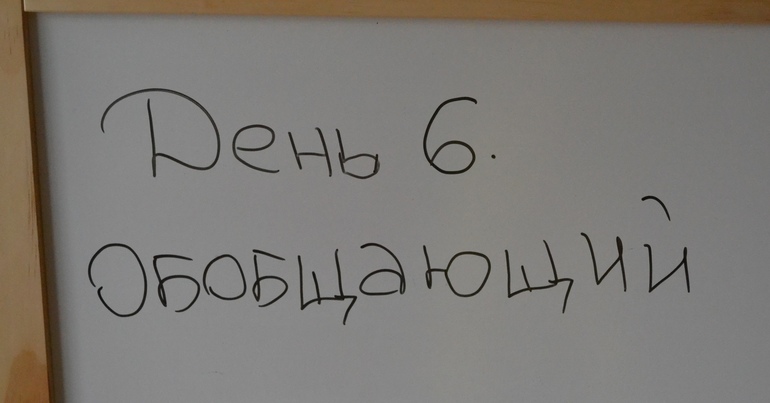 День 6.
Обобщающий